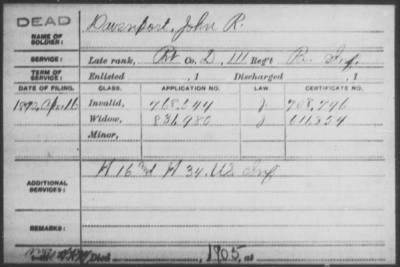 DEAD
NAME OF SOLDIER: Davenport, John R.
SERVICE: Late rank, Pvt Co. D, 111 Reg't Pa. Inf.
TERM OF SERVICE: Enlisted , 1 Discharged , 1
DATE OF FILING. CLASS. APPLICATION NO. LAW. CERTIFICATE NO.
Invalid, 768,244 J 768,746
Widow, 831,980 J
Minor,
ADDITIONAL SERVICES: H 16 H 34 US Inf
REMARKS:
Died , 1905, at